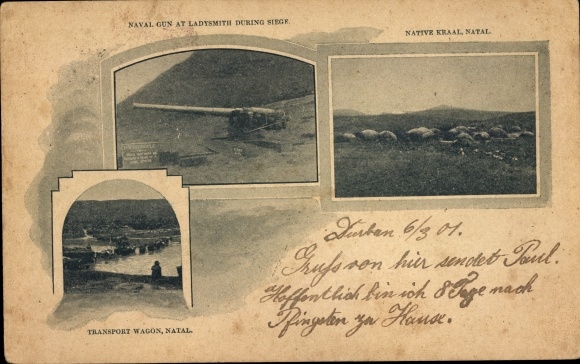 NAVAL GUN AT LADYSMITH DURING SIEGE.
NATIVE KRAAL, NATAL.
Durban 6/3 01.
Gruss von hier sendet Paul.
Hoffentlich bin ich 8 Tage nach
Pfingsten zu Hause.
TRANSPORT WAGON, NATAL.